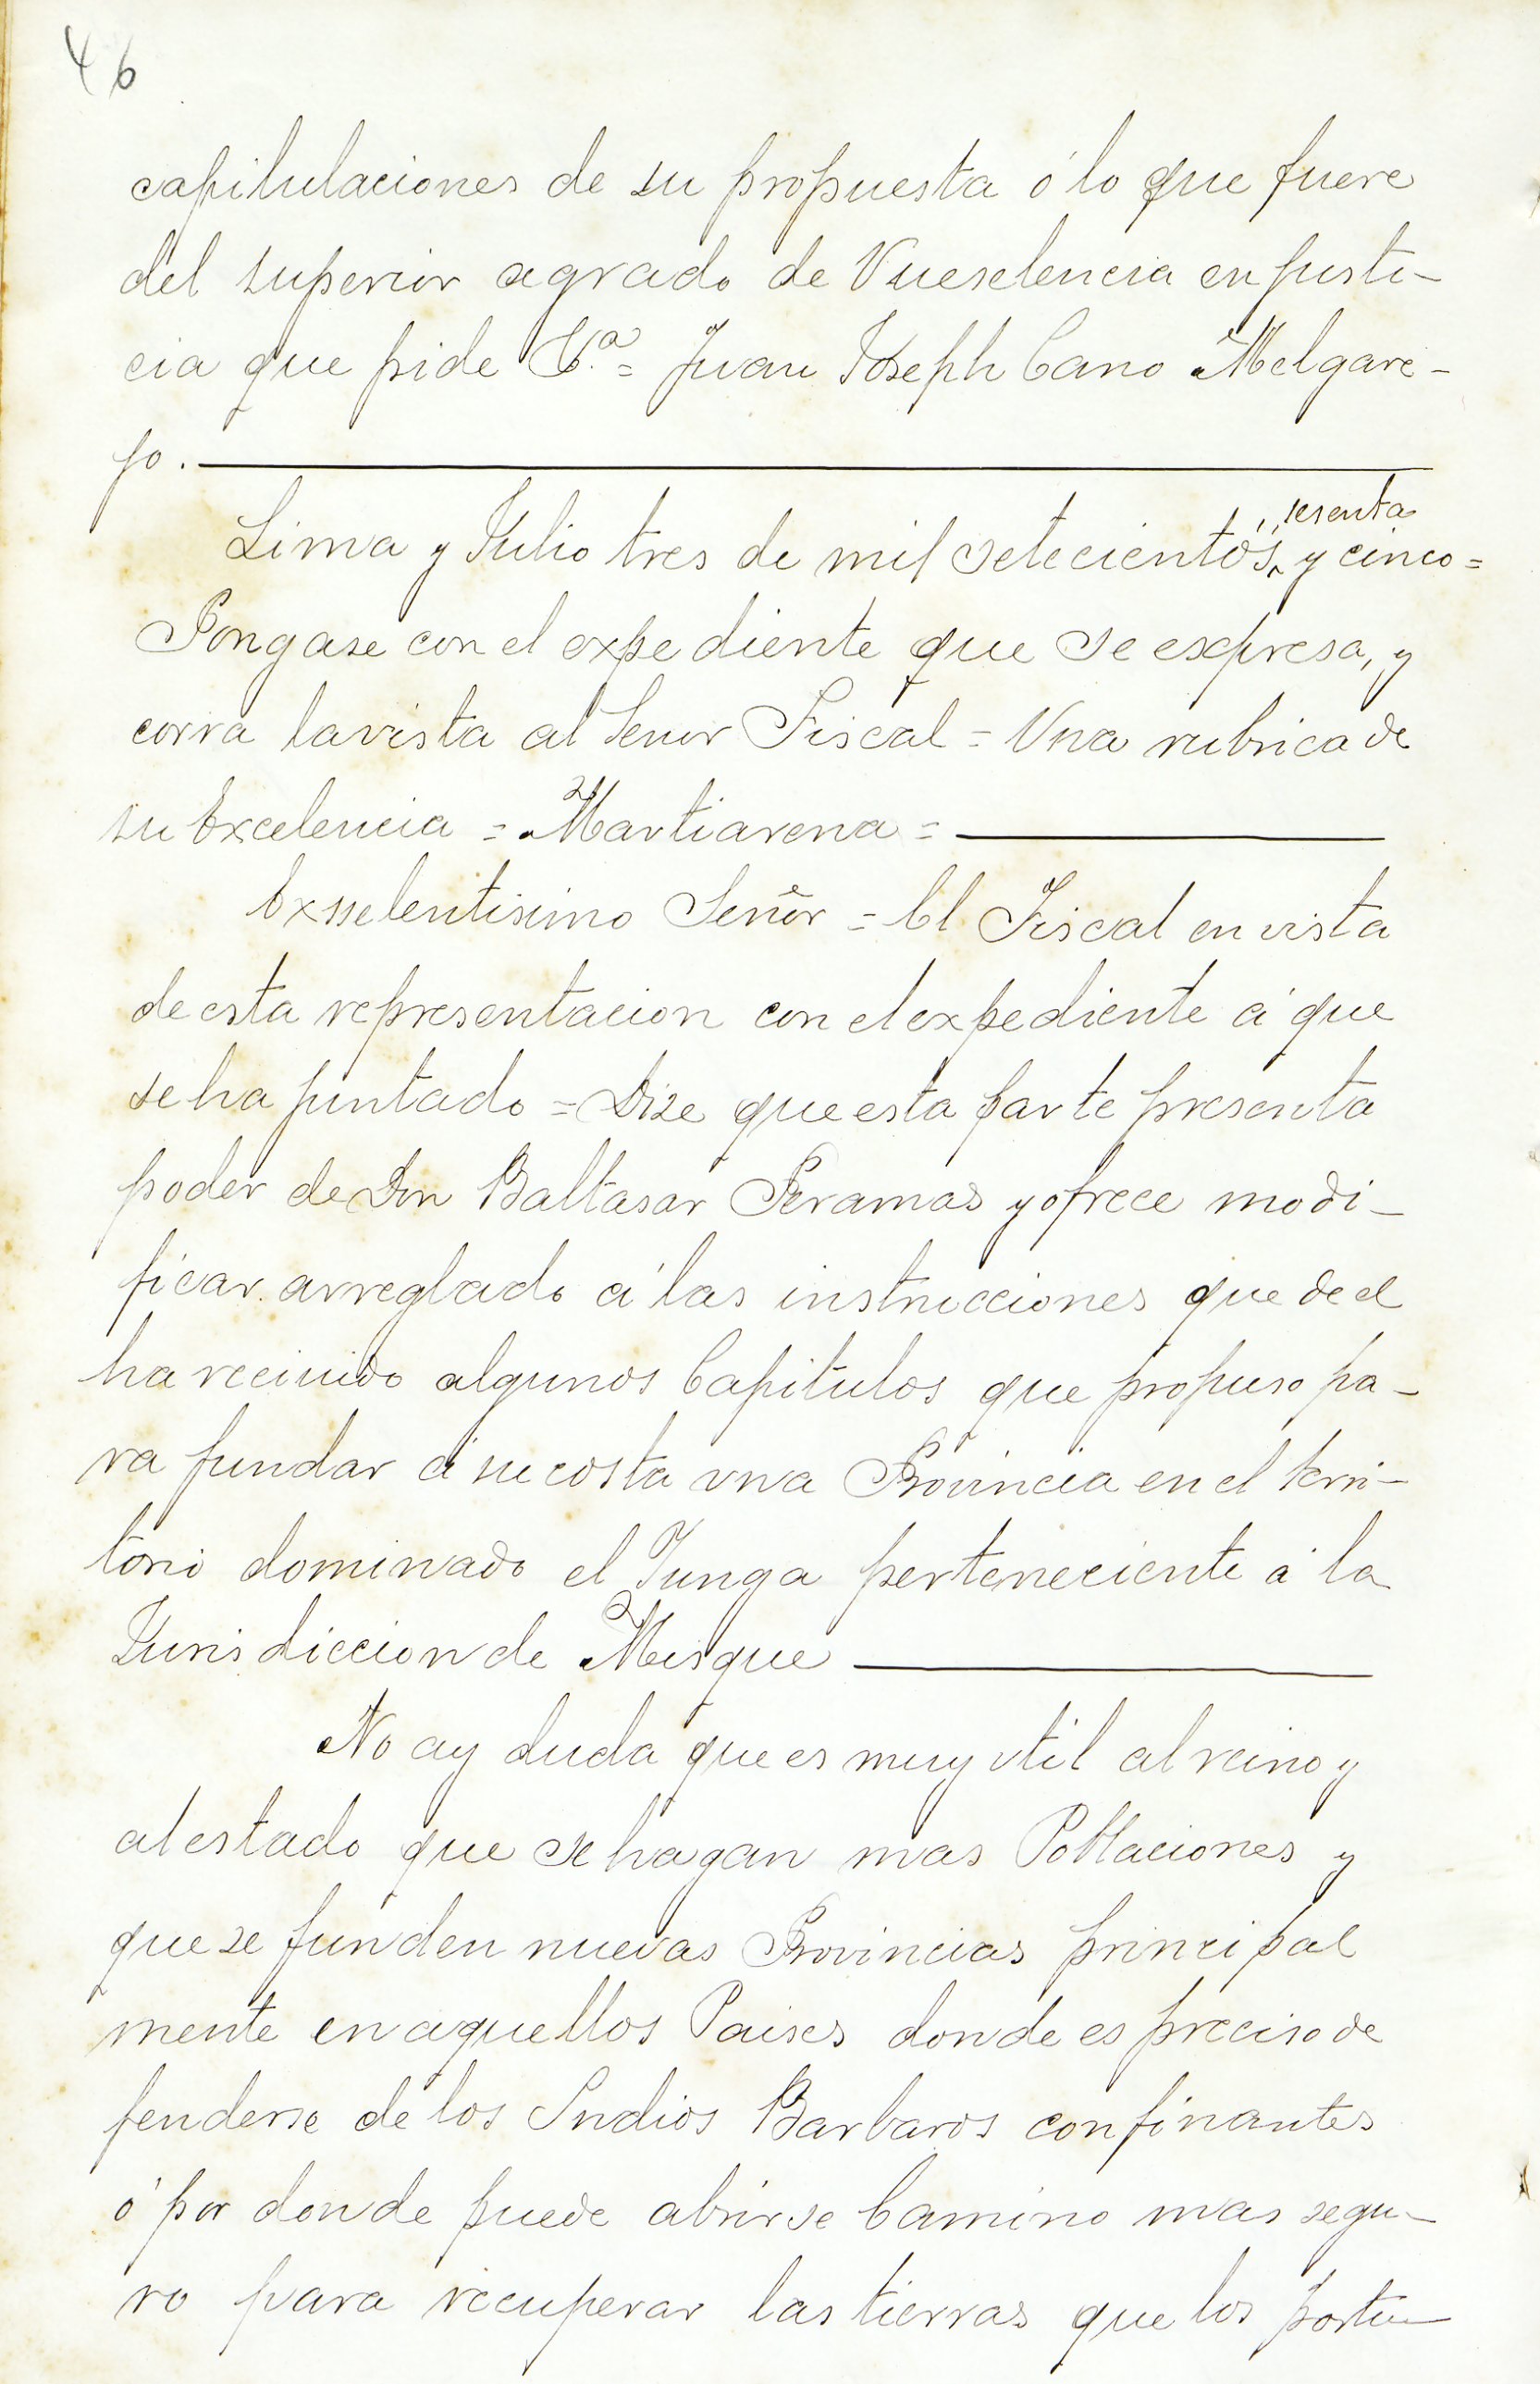 46
capitulaciones de su propuesta ó lo que fuere
del superior agrado de Vueselencia en justi-
cia que pide Va. = Juan Joseph Cano Melgare-
jo.
Lima y Julio tres de mil setecientos, sesenta y cinco =
Pongase con el expediente que se expresa, y
corra la vista al Senor Fiscal = Vna rubrica de
su Excelencia = Martiarena =
Exselentisimo Señor = El Fiscal en vista
de esta representacion con el expediente á que
se ha juntado = Dize que esta parte presenta
poder de Don Baltasar Peramas y ofrece modi-
ficar arreglado á las instrucciones que de el
ha reciuido algunos Capitulos que propuso pa-
ra fundar á su costa vna Provincia en el terri-
torio dominado el Yunga perteneciente á la
Jurisdiccion de Misque
No ay duda que es muy vtil al reino y
al estado que se hagan mas Poblaciones y
que se funden nuevas Provincias principal
mente en aquellos Paises donde es preciso de
fenderse de los Indios Barbaros confinantes
ó por donde puede abrirse Camino mas segu-
ro para recuperar las tierras que los portu-